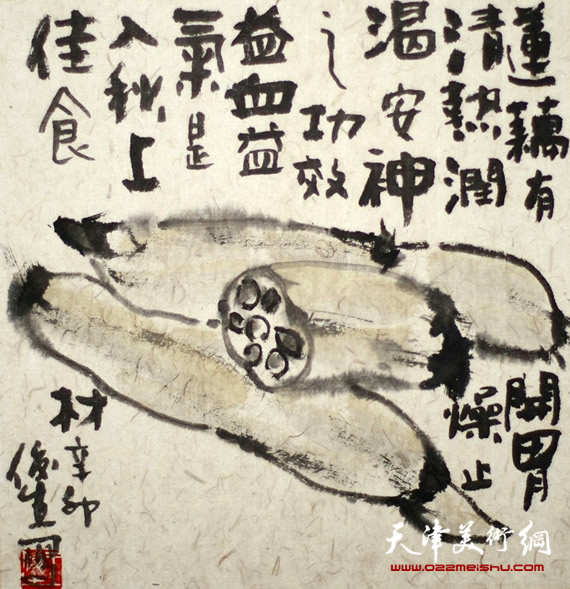 蓮藕有
開胃
清熱潤
燥止
渴安神
之功效
益血益
氣是
入秋上
佳食
材
辛卯
俊生
天津美術網
www.022meishu.com